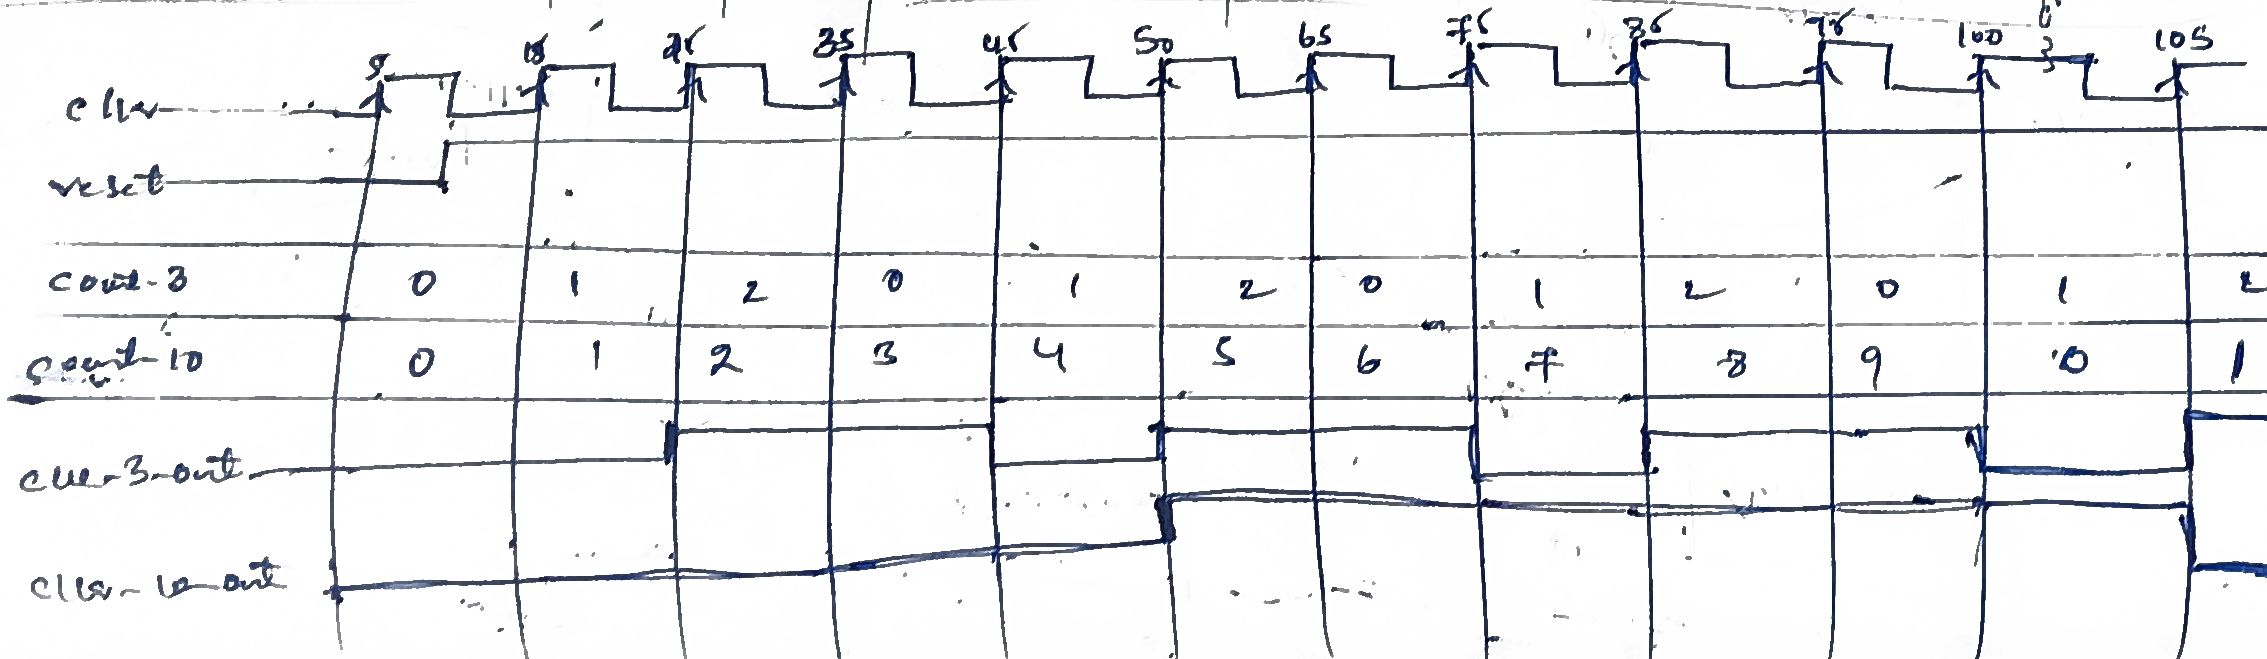 5 15 25 35 45 50 65 75 85 95 100 105
clk
reset
count-3 0 1 2 0 1 2 0 1 2 0 1 2
count-10 0 1 2 3 4 5 6 7 8 9 0 1
clk-3-out
clk-10-out